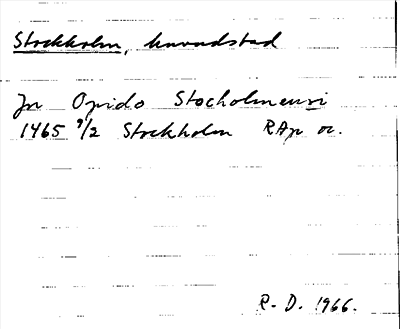 Stockholm, huvudstad
Jn Opido Stocholmensi
1465 9/2 Stockholm RAp or.
R. D. 1966.